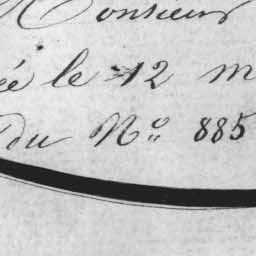 Monsieur
ée le 12 m
du N° 885